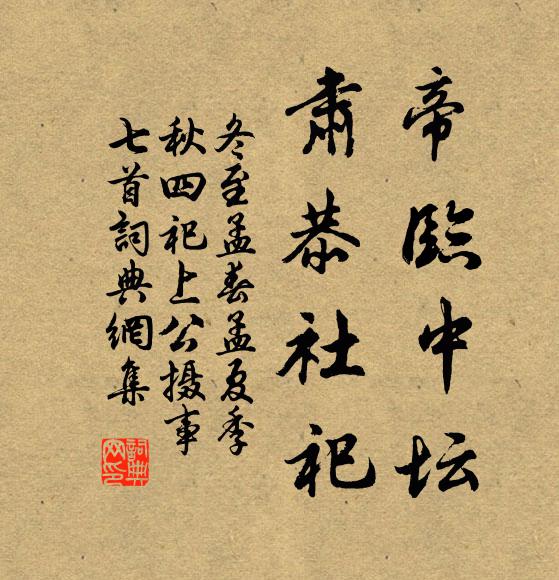 帝臨中坛
肅恭社祀
冬至孟春孟夏季
秋四祀上公摄事
七首詞典網集
詞典网印